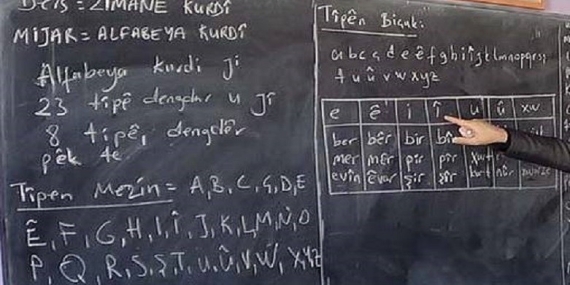 DERS = ZIMANÊ KURDÎ
MIJAR = ALFABEYA KURDÎ
Alfabeya Kurdi ji
23 tîpê dengdar u jî
8 tipê, dengdêr
pêk tê
Tîpên Mezin = A, B, C, Ç, D, E
Ê, F, G, H, I, Î, J, K, L, M, N, O
P, Q, R, S, Ş, T, U, Û, V, W, X, Y, Z
Tîpên Biçuk:
a b c ç d e ê f g h i î j k l m n o p q r s ş
t u û v w x y z
e ê i î u û xw
ber bêr bir bîr
mer mêr pir pîr
evîn êvar şir şîr